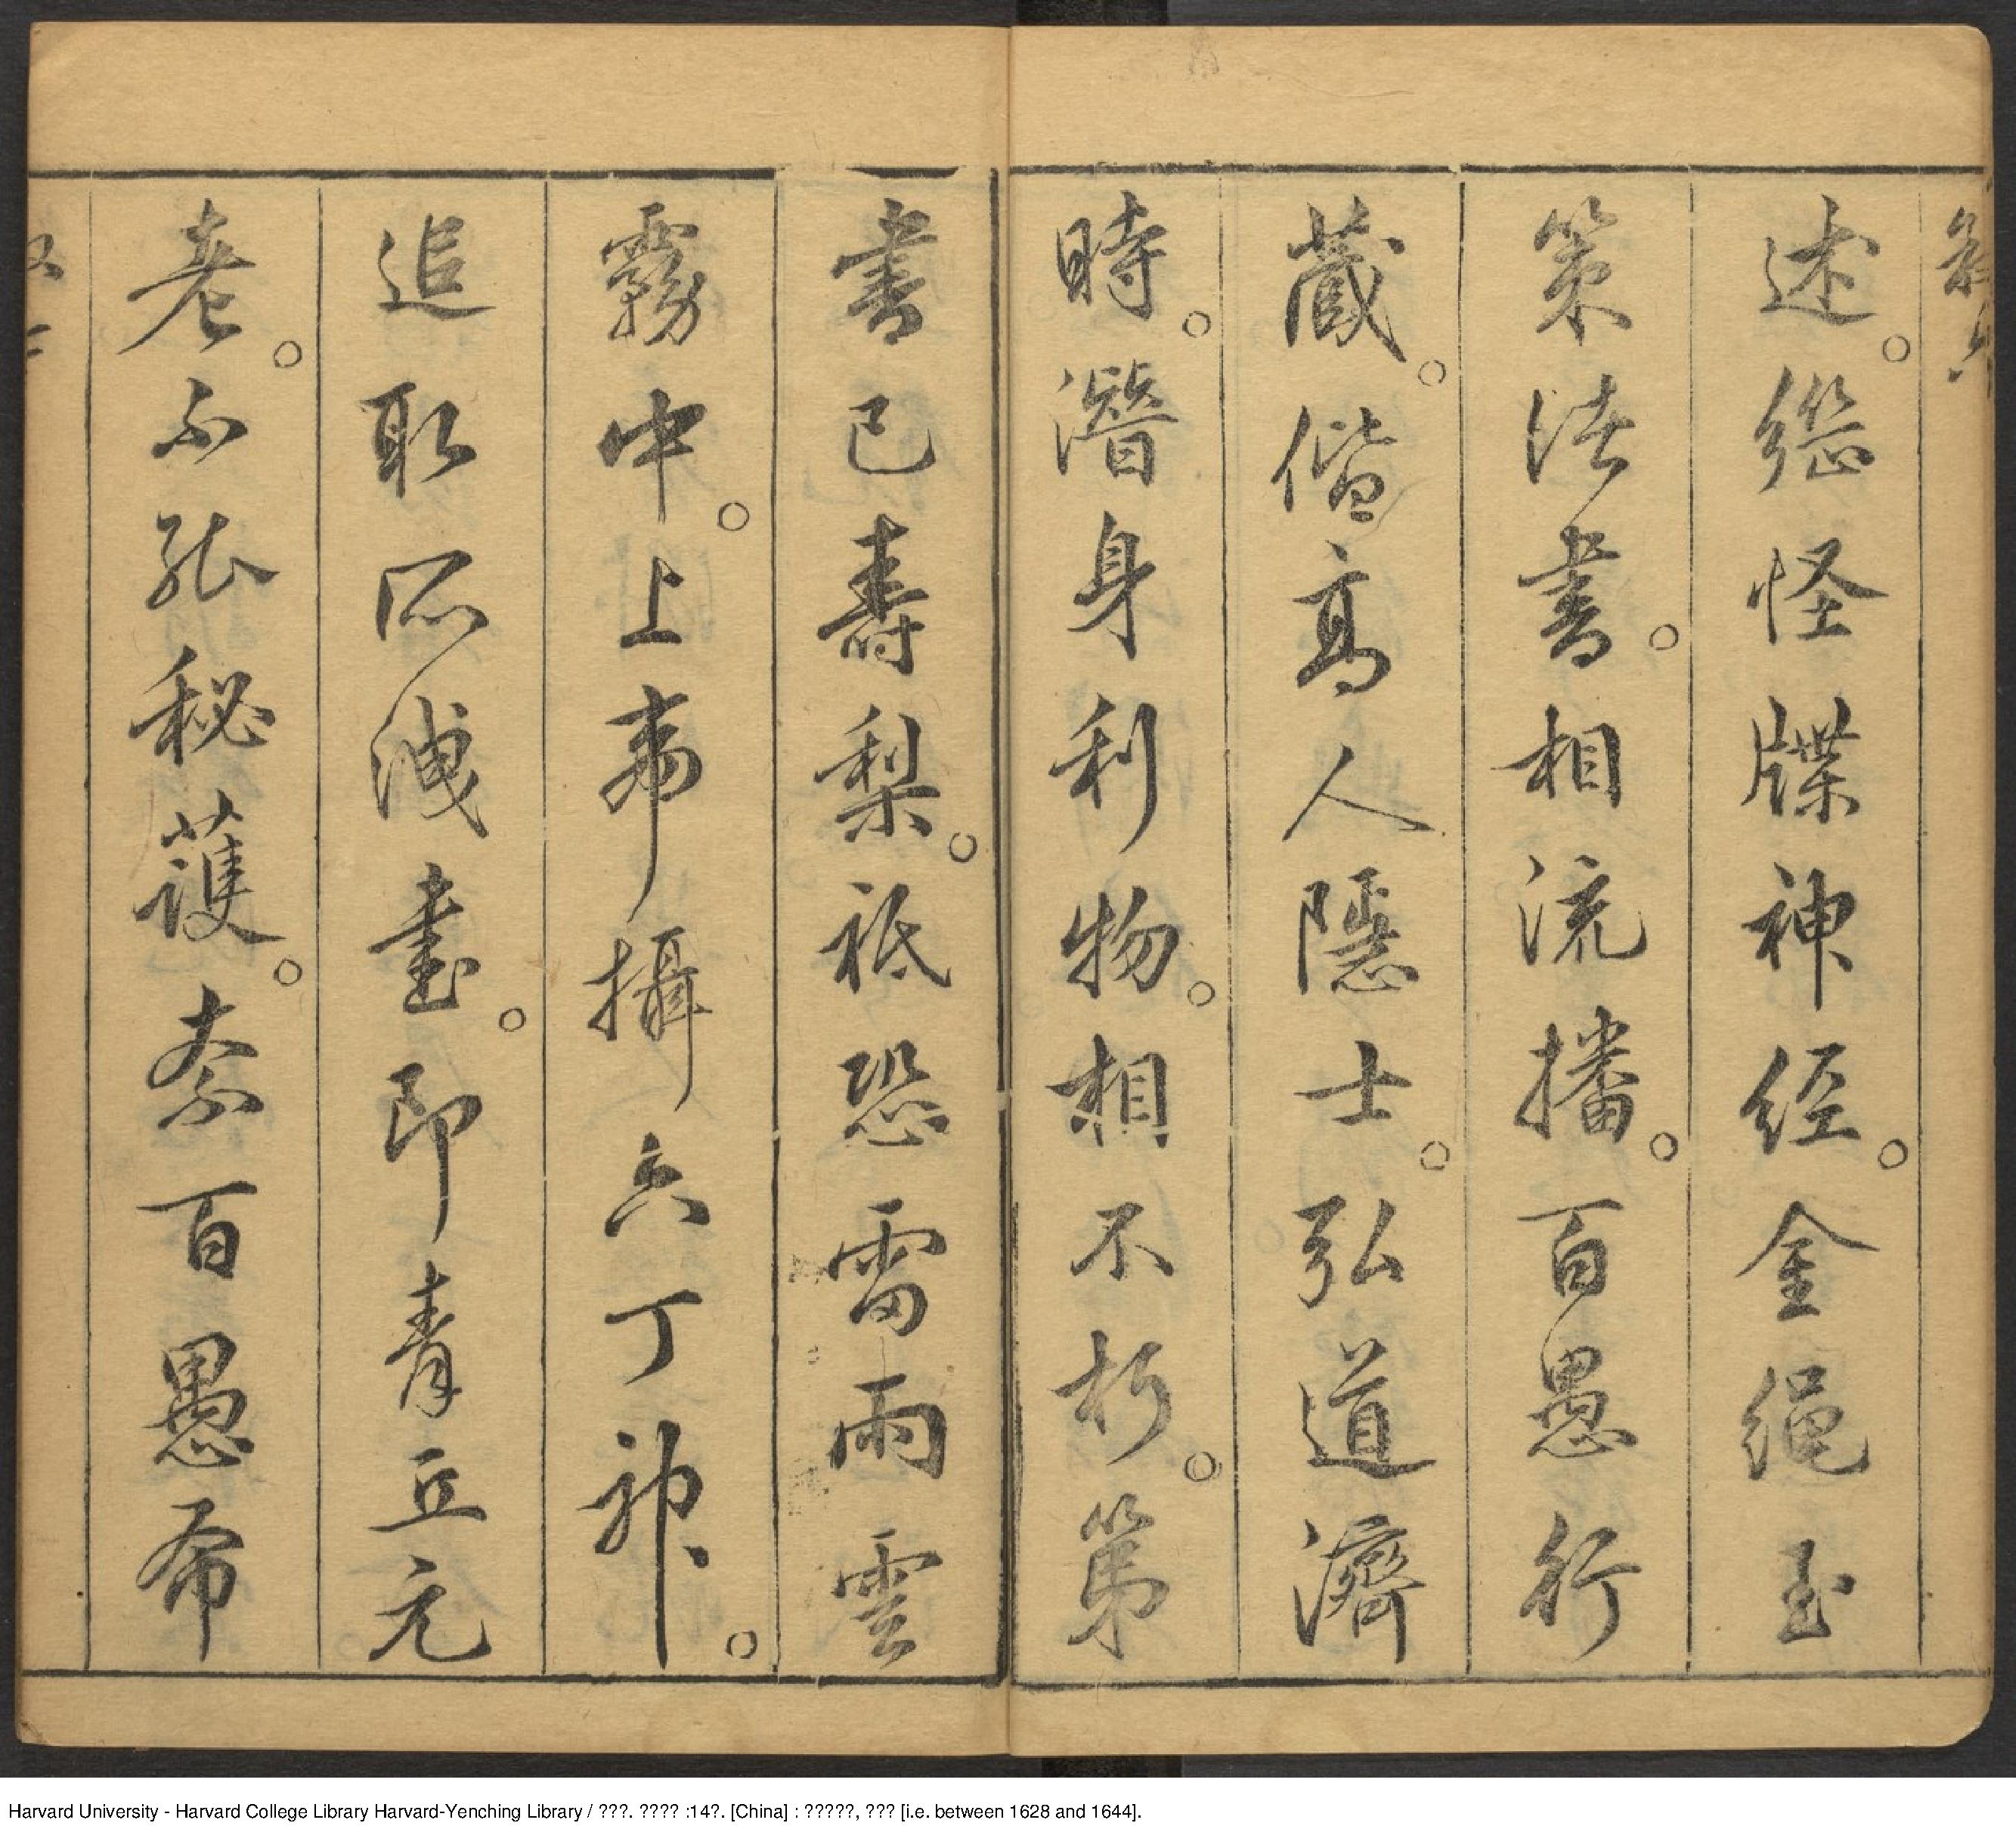 述。繼怪牒神經。金繩玉
策法書。相流播。百愚行
藏。偕高人隱士。弘道濟
時。潛身利物。相不朽。第
書已壽梨。祗恐雷雨雲
霧中。上帝攝六丁神。
追取所洩書。即青丘元
老。不能秘護。奈百愚希
Harvard University - Harvard College Library Harvard-Yenching Library / ???. ???? :14?. [China] : ?????, ??? [i.e. between 1628 and 1644].